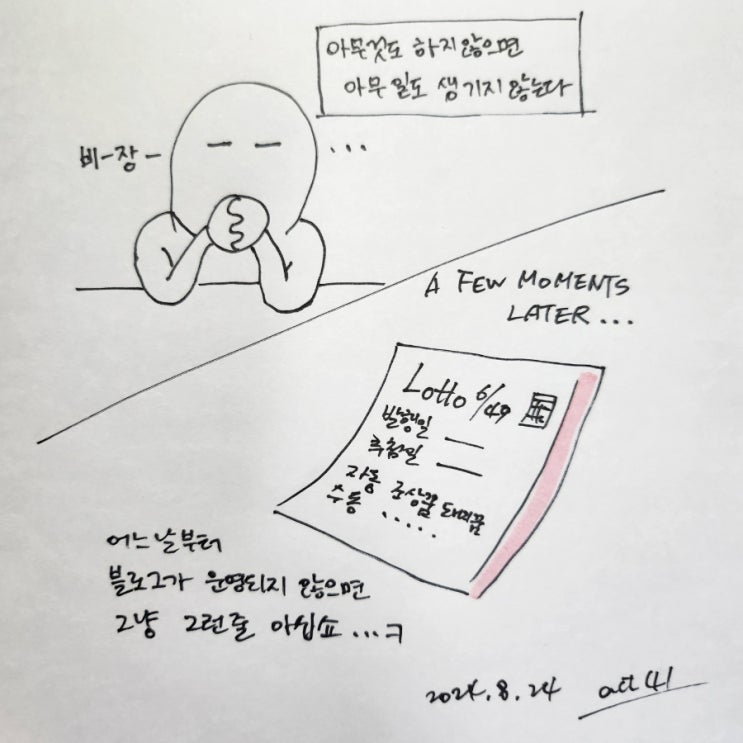 아무것도 하지 않으면
아무 일도 생기지 않는다
비-장-
...
A FEW MOMENTS
LATER...
Lotto 6/49
발행일
추첨일
자동 조상꿈 돼지꿈
수동 .....
어느 날부터
블로그가 운영되지 않으면
그냥 그런줄 아십쇼...ㅋ
2024.8.24 act 41